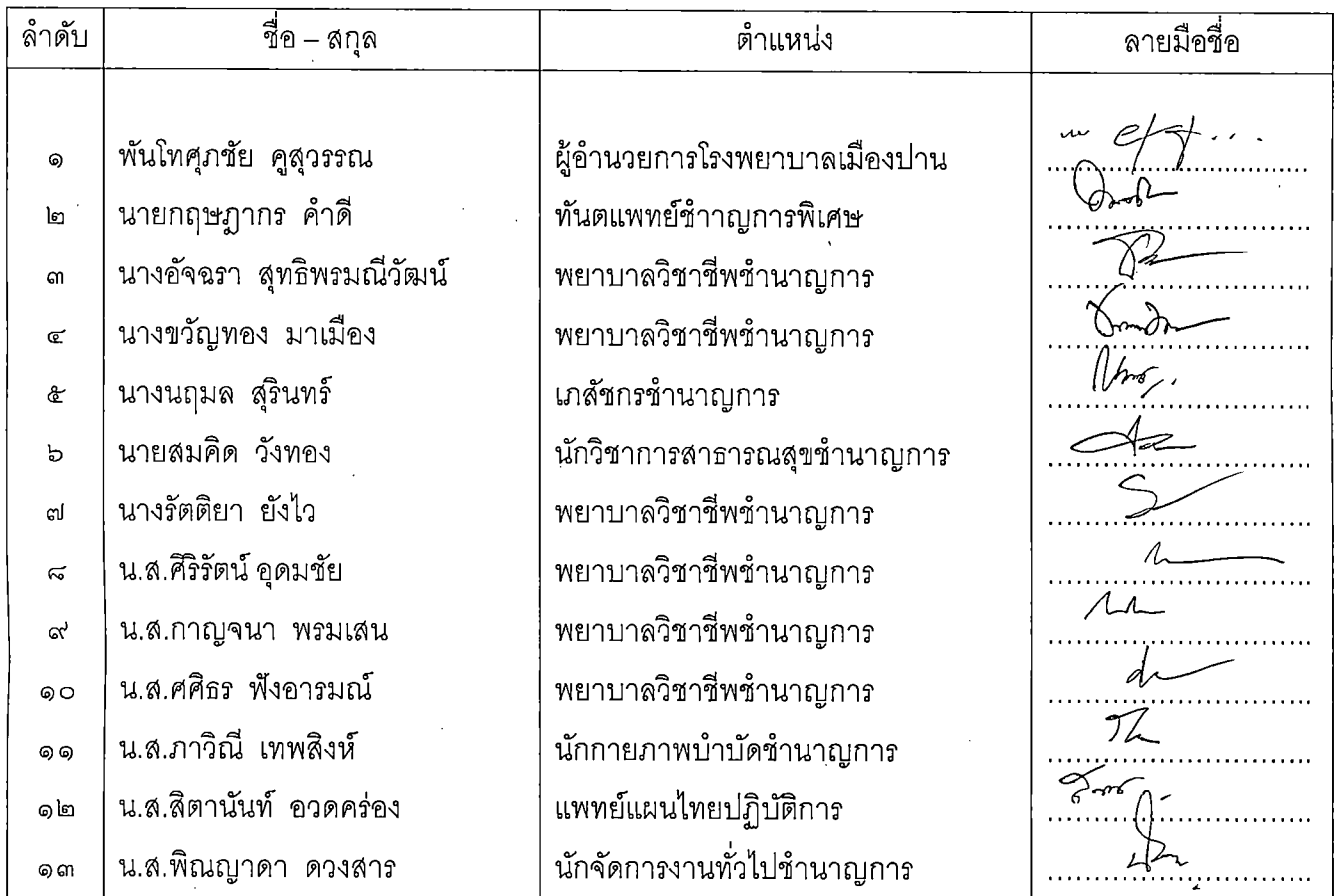 ลำดับ ชื่อ – สกุล ตำแหน่ง ลายมือชื่อ
๑ พันโทศุภชัย คูสุวรรณ ผู้อำนวยการโรงพยาบาลเมืองปาน
๒ นายกฤษฎากร คำดี ทันตแพทย์ชำาญการพิเศษ
๓ นางอัจฉรา สุทธิพรมณีวัฒน์ พยาบาลวิชาชีพชำนาญการ
๔ นางขวัญทอง มาเมือง พยาบาลวิชาชีพชำนาญการ
๕ นางนฤมล สุรินทร์ เภสัชกรชำนาญการ
๖ นายสมคิด วังทอง นักวิชาการสาธารณสุขชำนาญการ
๗ นางรัตติยา ยังไว พยาบาลวิชาชีพชำนาญการ
๘ น.ส.ศิริรัตน์ อุดมชัย พยาบาลวิชาชีพชำนาญการ
๙ น.ส.กาญจนา พรมเสน พยาบาลวิชาชีพชำนาญการ
๑๐ น.ส.ศศิธร ฟังอารมณ์ พยาบาลวิชาชีพชำนาญการ
๑๑ น.ส.ภาวิณี เทพสิงห์ นักกายภาพบำบัดชำนาญการ
๑๒ น.ส.สิตานันท์ อวดคร่อง แพทย์แผนไทยปฏิบัติการ
๑๓ น.ส.พิณญาดา ดวงสาร นักจัดการงานทั่วไปชำนาญการ